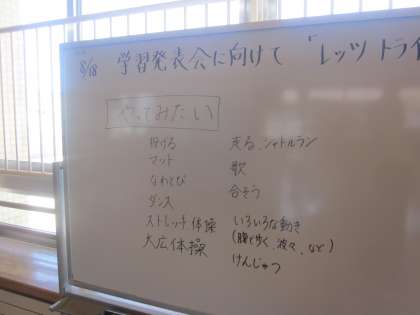 8/18 学習発表会に向けて 「レッツトライ
やってみたい
投げる
マット
なわとび
ダンス
ストレッチ体操
大広体操
走る、シャトルラン
歌
合そう
いろいろな動き
けんじゅつ